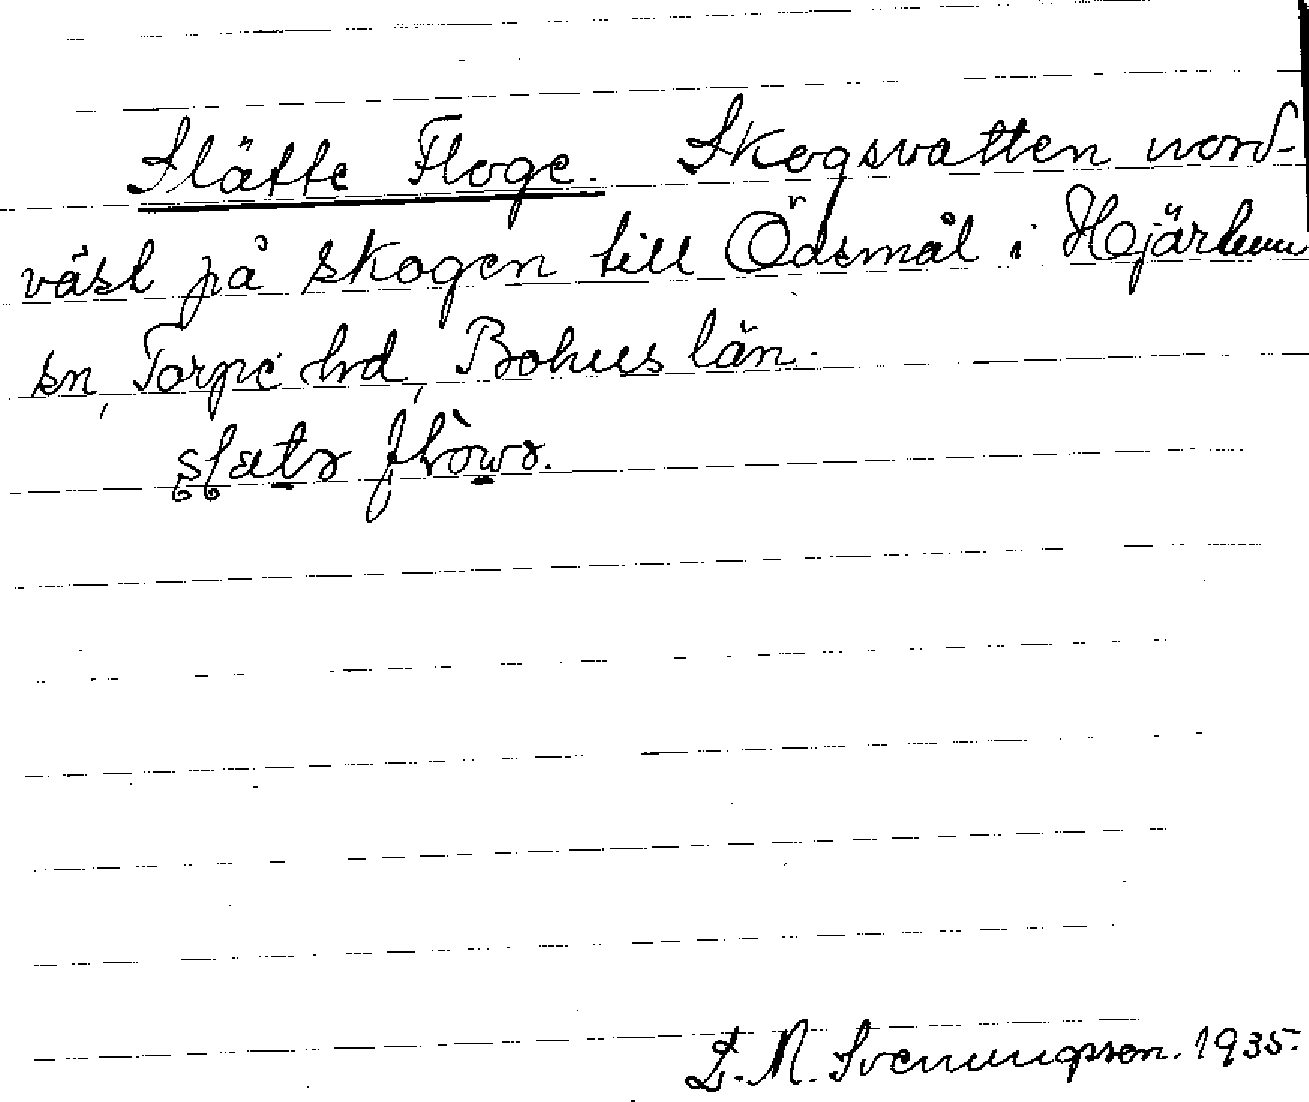 Slätte Floge. Skogsvatten nord-
väst på skogen till Ödsmål i Hjärtum
sn, Torpe hd, Bohus län.
J. N. Svenungsson. 1935.